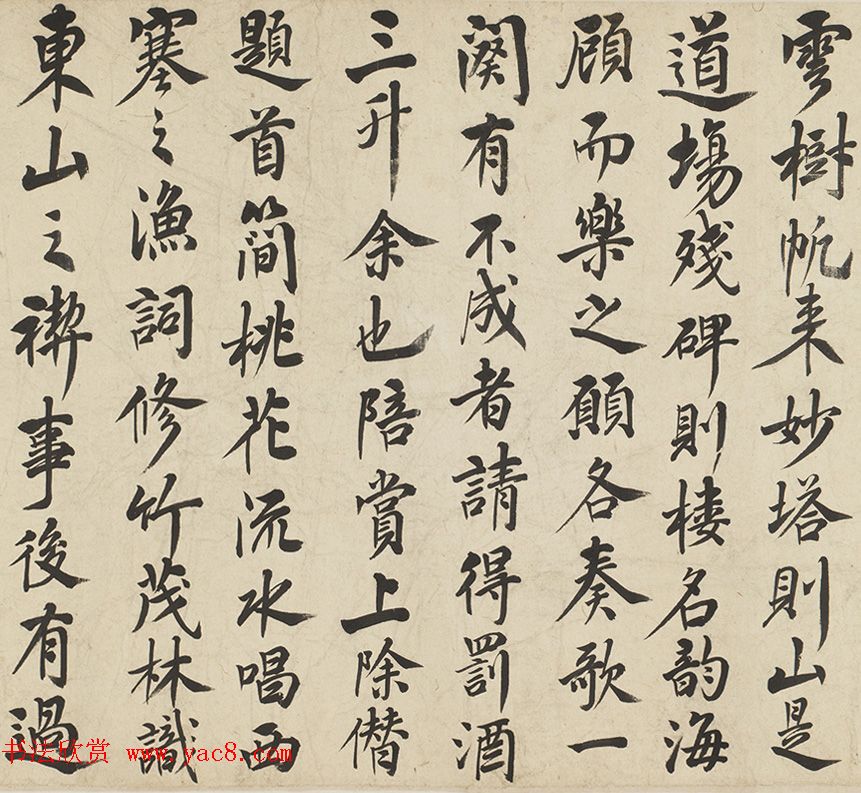 雲樹帆来妙塔則山是
道場殘碑則樓名韵海
顧而樂之願各奏歌一
闋有不成者請得罰酒
三升余也陪賞上除僣
題首簡桃花流水唱西
塞之漁詞修竹茂林識
東山之禊事後有過
书法欣赏 www.yac8.com